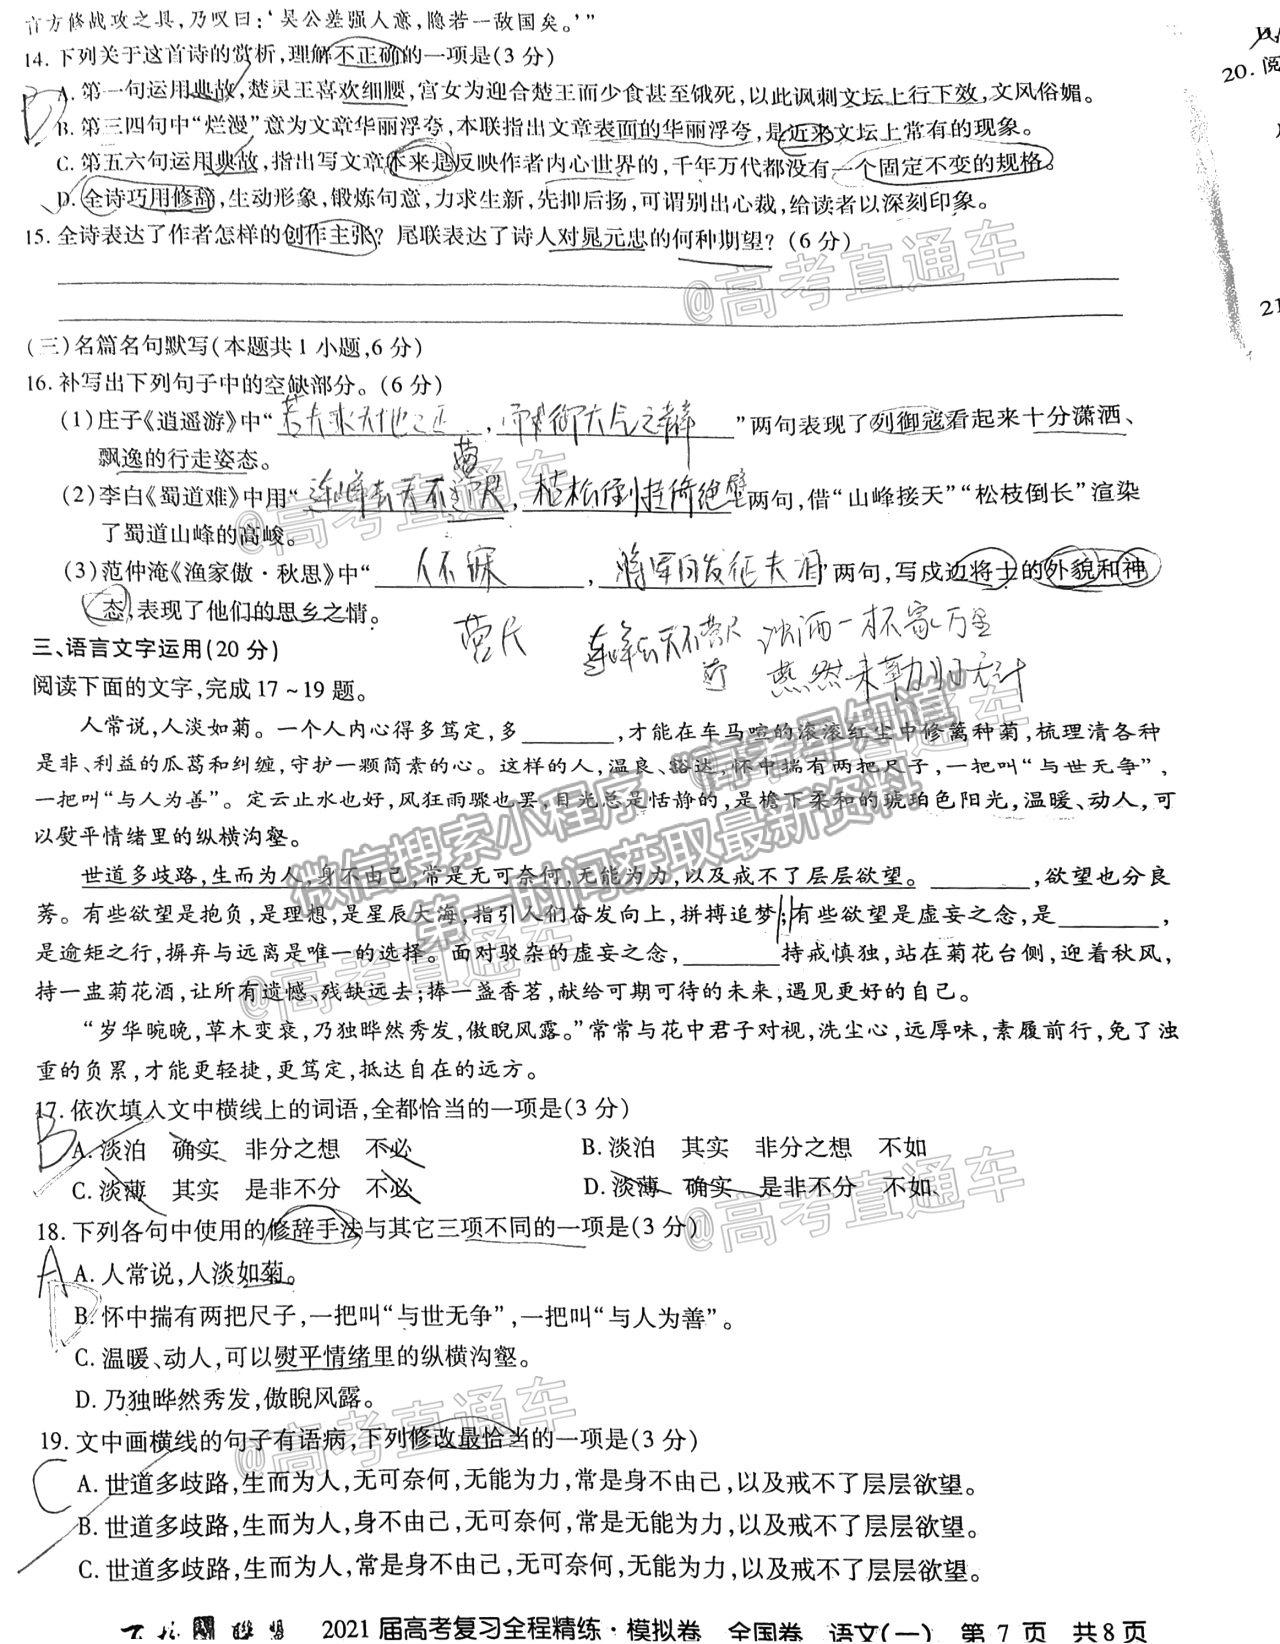 官方修战攻之具，乃叹曰：‘吴公差强人意，隐若一敌国矣。’”
14. 下列关于这首诗的赏析，理解不正确的一项是（3 分）
A. 第一句运用典故，楚灵王喜欢细腰，宫女为迎合楚王而少食甚至饿死，以此讽刺文坛上行下效，文风俗媚。
B. 第三四句中“烂漫”意为文章华丽浮夸，本联指出文章表面的华丽浮夸，是近来文坛上常有的现象。
C. 第五六句运用典故，指出写文章本来是反映作者内心世界的，千年万代都没有一个固定不变的规格。
D. 全诗巧用修辞，生动形象，锻炼句意，力求生新，先抑后扬，可谓别出心裁，给读者以深刻印象。
15. 全诗表达了作者怎样的创作主张？尾联表达了诗人对晁元忠的何种期望？（6 分）
（三）名篇名句默写（本题共 1 小题，6 分）
16. 补写出下列句子中的空缺部分。（6 分）
（1）庄子《逍遥游》中“若夫乘天地之正，而御六气之辩”两句表现了列御寇看起来十分潇洒、
飘逸的行走姿态。
（2）李白《蜀道难》中用“连峰去天不盈尺，枯松倒挂倚绝壁两句，借“山峰接天”“松枝倒长”渲染
了蜀道山峰的高峻。
（3）范仲淹《渔家傲·秋思》中“人不寐，将军白发征夫泪”两句，写戍边将士的外貌和神
态，表现了他们的思乡之情。
盈尺 连峰去天不盈尺 浊酒一杯家万里
燕然未勒归无计
三、语言文字运用（20 分）
阅读下面的文字，完成 17～19 题。
人常说，人淡如菊。一个人内心得多笃定，多________，才能在车马喧的滚滚红尘中修篱种菊，梳理清各种
是非、利益的瓜葛和纠缠，守护一颗简素的心。这样的人，温良、豁达，怀中揣有两把尺子，一把叫“与世无争”，
一把叫“与人为善”。定云止水也好，风狂雨骤也罢，目光总是恬静的，是檐下柔和的琥珀色阳光，温暖、动人，可
以熨平情绪里的纵横沟壑。
世道多歧路，生而为人，身不由己，常是无可奈何，无能为力，以及戒不了层层欲望。________，欲望也分良
莠。有些欲望是抱负，是理想，是星辰大海，指引人们奋发向上，拼搏追梦；有些欲望是虚妄之念，是________，
是逾矩之行，摒弃与远离是唯一的选择。面对驳杂的虚妄之念，________持戒慎独，站在菊花台侧，迎着秋风，
持一盅菊花酒，让所有遗憾、残缺远去；捧一盏香茗，献给可期可待的未来，遇见更好的自己。
“岁华晼晚，草木变衰，乃独晔然秀发，傲睨风露。”常常与花中君子对视，洗尘心，远厚味，素履前行，免了浊
重的负累，才能更轻捷，更笃定，抵达自在的远方。
17. 依次填入文中横线上的词语，全都恰当的一项是（3 分）
B
A. 淡泊 确实 非分之想 不必
B. 淡泊 其实 非分之想 不如
C. 淡薄 其实 是非不分 不必
D. 淡薄 确实 是非不分 不如
18. 下列各句中使用的修辞手法与其它三项不同的一项是（3 分）
A
A. 人常说，人淡如菊。
D
B. 怀中揣有两把尺子，一把叫“与世无争”，一把叫“与人为善”。
C. 温暖、动人，可以熨平情绪里的纵横沟壑。
D. 乃独晔然秀发，傲睨风露。
19. 文中画横线的句子有语病，下列修改最恰当的一项是（3 分）
C
A. 世道多歧路，生而为人，无可奈何，无能为力，常是身不由己，以及戒不了层层欲望。
B. 世道多歧路，生而为人，身不由己，无可奈何，常是无能为力，以及戒不了层层欲望。
C. 世道多歧路，生而为人，常是身不由己，无可奈何，无能为力，以及戒不了层层欲望。
2021 届高考复习全程精练·模拟卷 全国卷 语文（一） 第 7 页 共 8 页
20. 阅
21
@高考直通车
@高考直通车
@高考直通车
@高考直通车
@高考直通车
微信搜索小程序“高考早知道”
第一时间获取最新资料